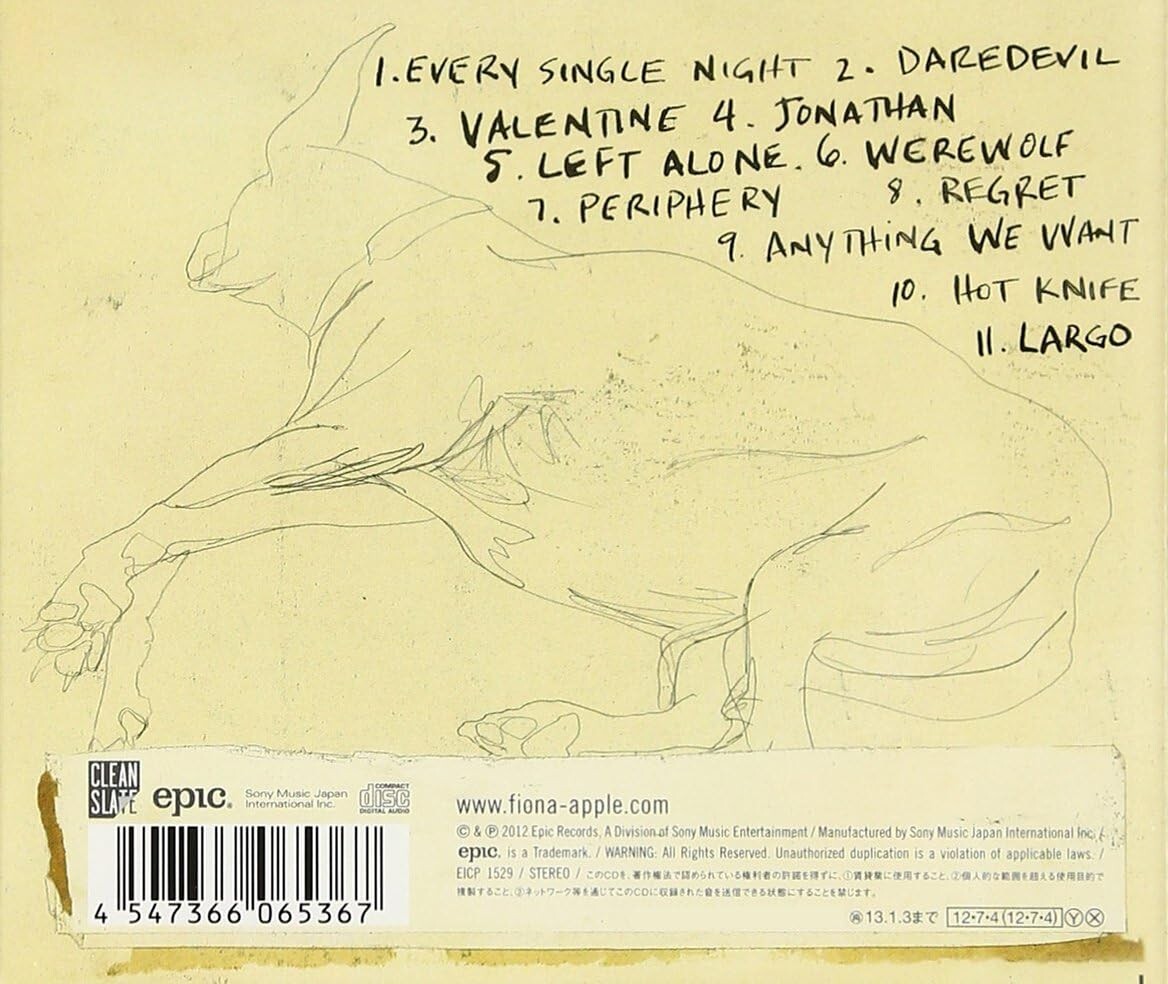 1. EVERY SINGLE NIGHT 2. DAREDEVIL
3. VALENTINE 4. JONATHAN
5. LEFT ALONE. 6. WEREWOLF
7. PERIPHERY 8. REGRET
9. ANYTHING WE WANT
10. HOT KNIFE
11. LARGO
CLEAN
SLATE
epic®
Sony Music Japan
International Inc.
COMPACT
disc
DIGITAL AUDIO
www.fiona-apple.com
© & ℗ 2012 Epic Records, A Division of Sony Music Entertainment / Manufactured by Sony Music Japan International Inc. /
epic. is a Trademark. / WARNING: All Rights Reserved. Unauthorized duplication is a violation of applicable laws. /
EICP 1529 / STEREO / このCDを、著作権法で認められている権利者の許諾を得ずに、①賃貸業に使用すること、②個人的な範囲を超える使用目的で
複製すること、③ネットワーク等を通じてこのCDに収録された音を送信できる状態にすることを禁じます。
4 547366 065367
㊑13.1.3まで 12・7・4(12・7・4) Ⓨ Ⓧ